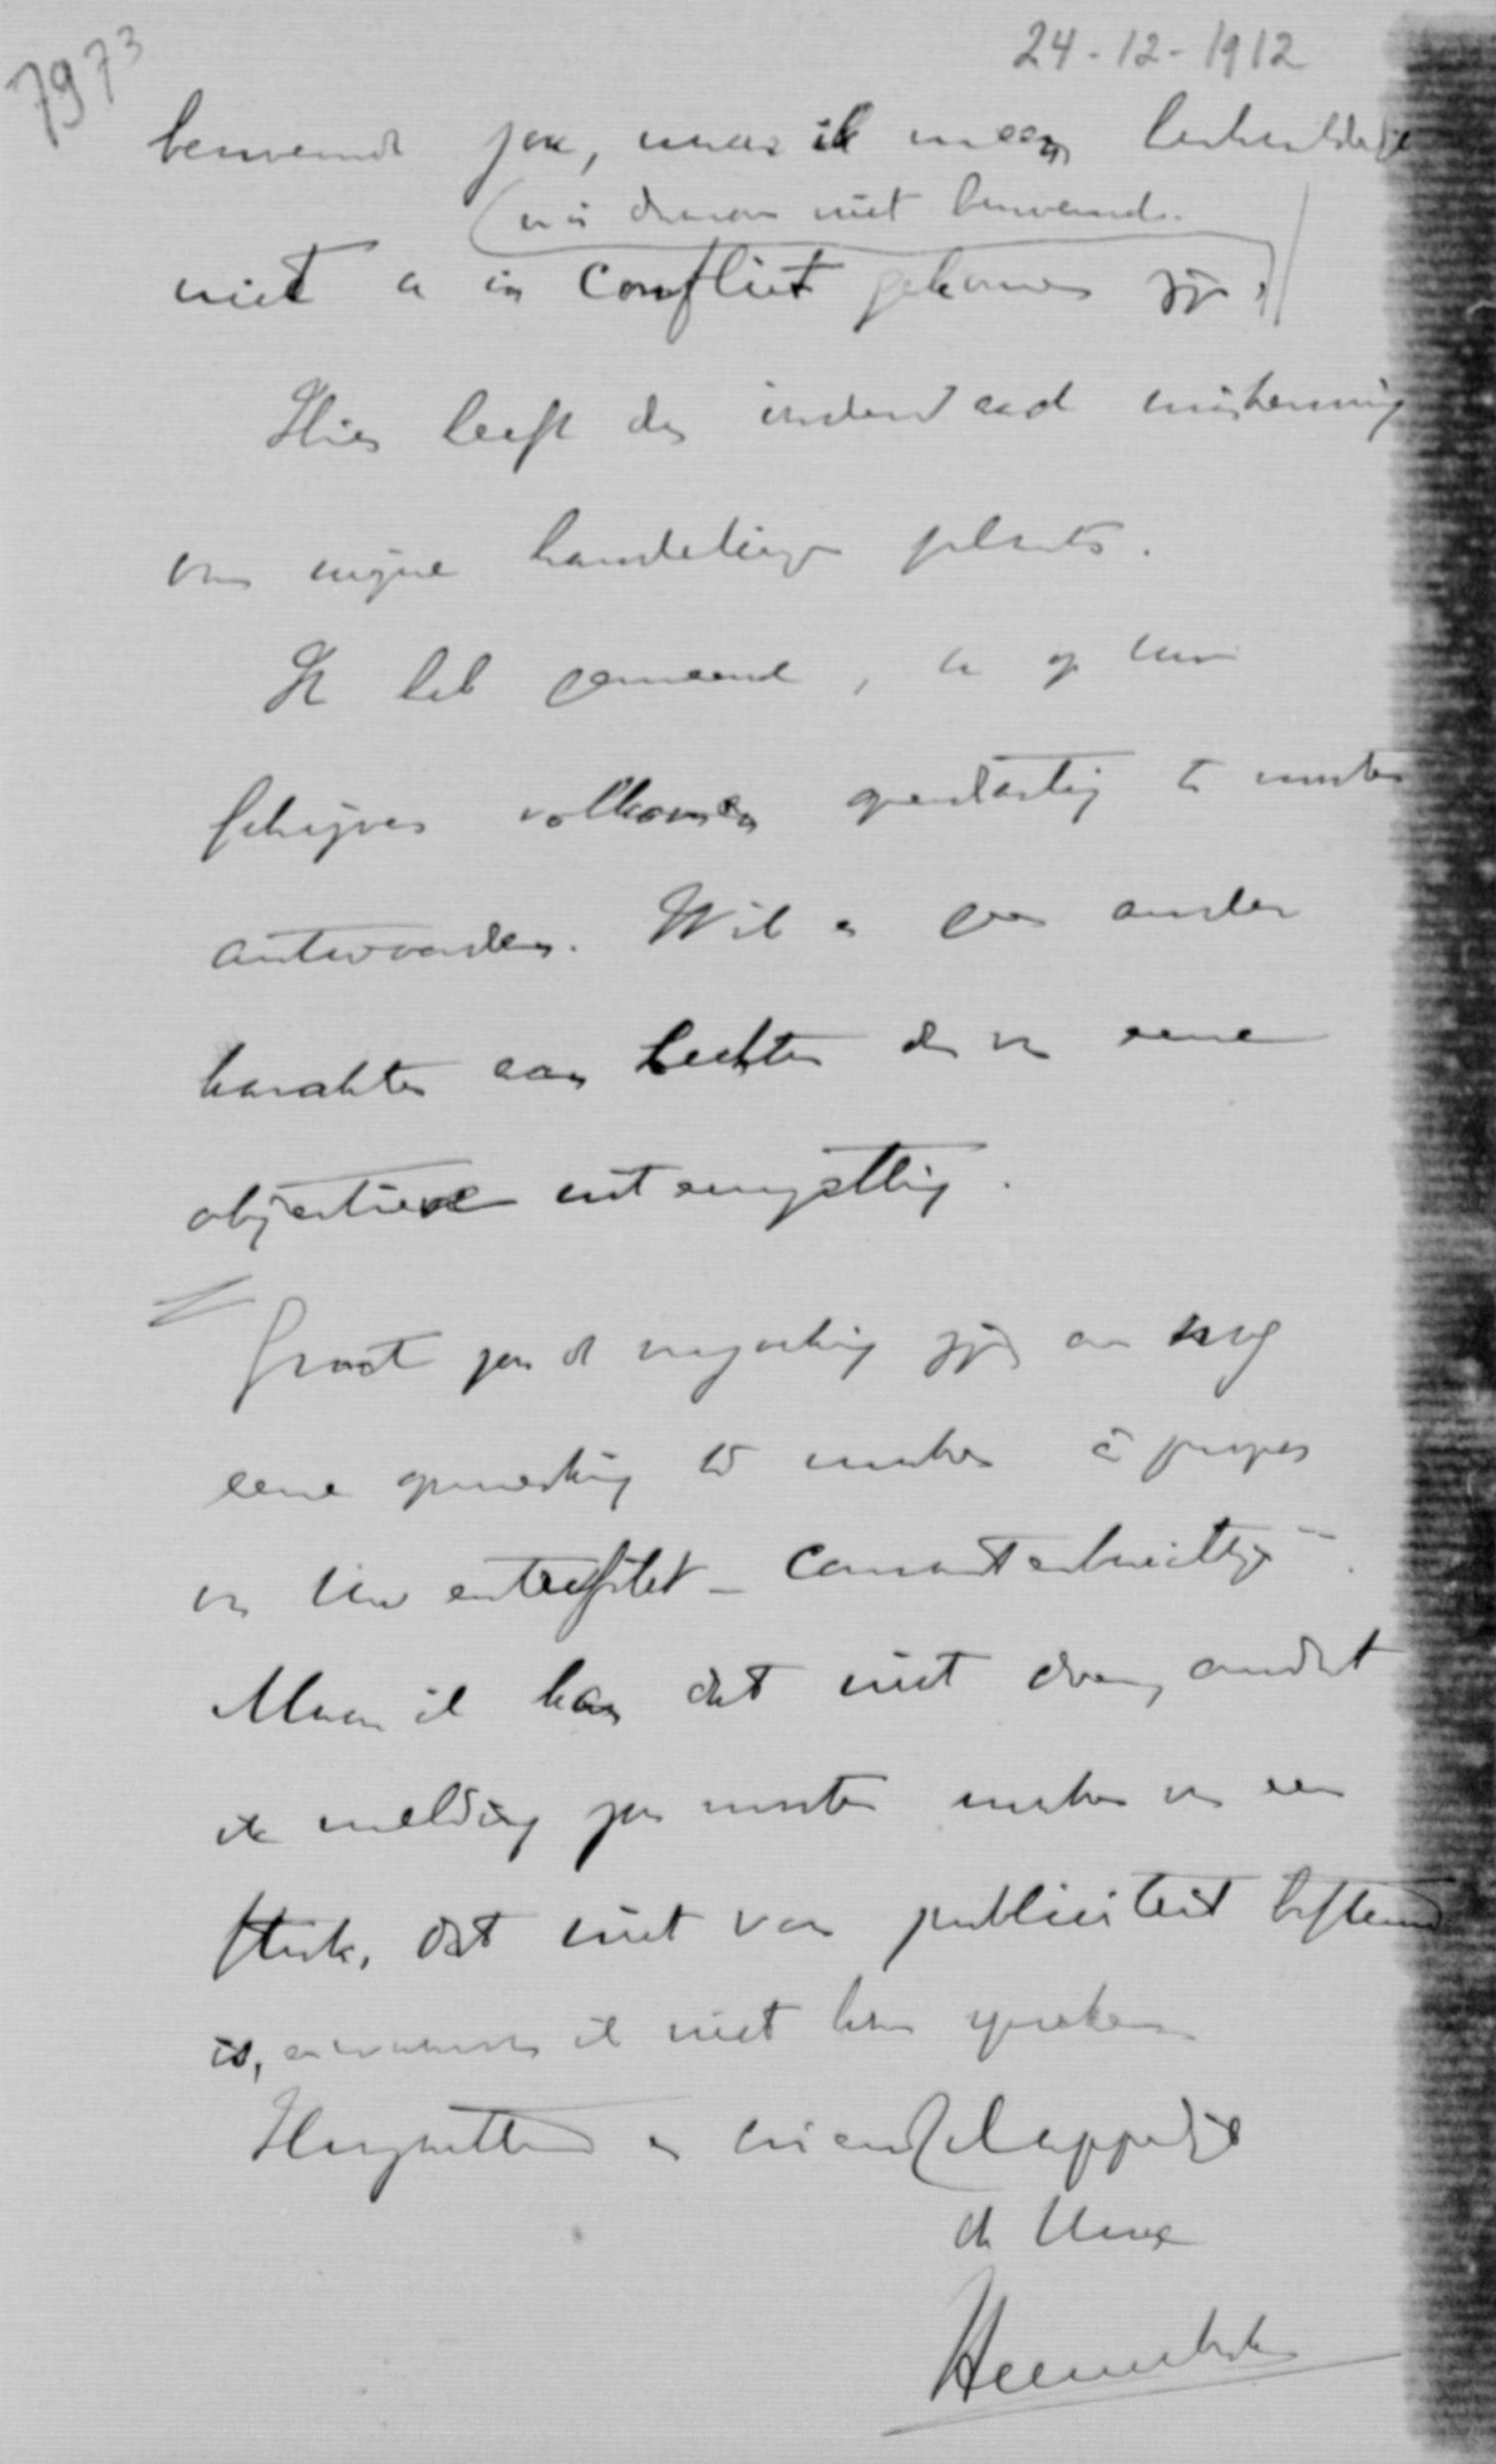 7973
24-12-1912
benoemd zou, maar ik meen
niet benoemd.
niet in conflict gekomen zijn.
Hier heeft dus inderdaad miskenning
van mijne handelingen plaats.
Ik heb gemeend, op Uw
schrijven volkomen openhartig te moeten
antwoorden. Wil er geen ander
karakter aan hechten dan van eene
objectieve uiteenzetting.
Groot zou de verzoeking zijn om nog
eene opmerking te maken à propos
van Uw entrefilet
Maar ik kan dat niet doen, omdat
ik melding zou moeten maken van een
stuk, dat niet voor publiciteit bestemd
is, en waarover ik niet kan spreken
Hoogachtend en vriendschappelijk
de Uwe
Heemskerk